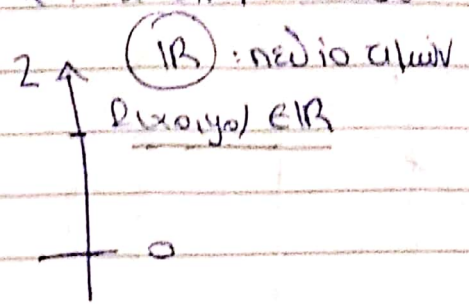 z ℝ : πεδίο τιμών
f(x₀,y₀) ∈ ℝ
0